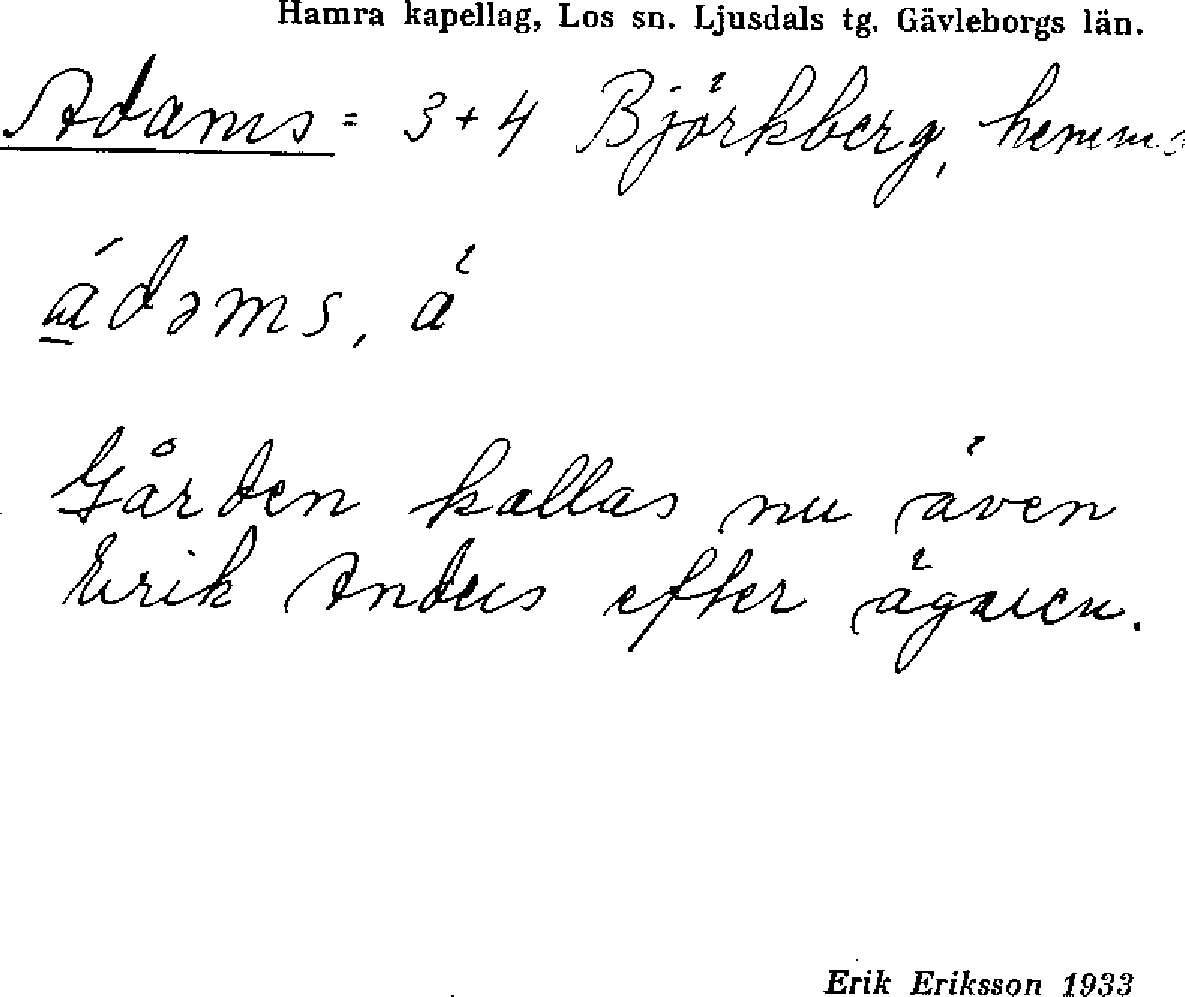 Hamra kapellag, Los sn. Ljusdals tg. Gävleborgs län.
Adams = 3+4 Björkberg, hemms
ádəms, ä
Gården kallas nu även
Erik Anders efter ägaren.
Erik Eriksson 1933